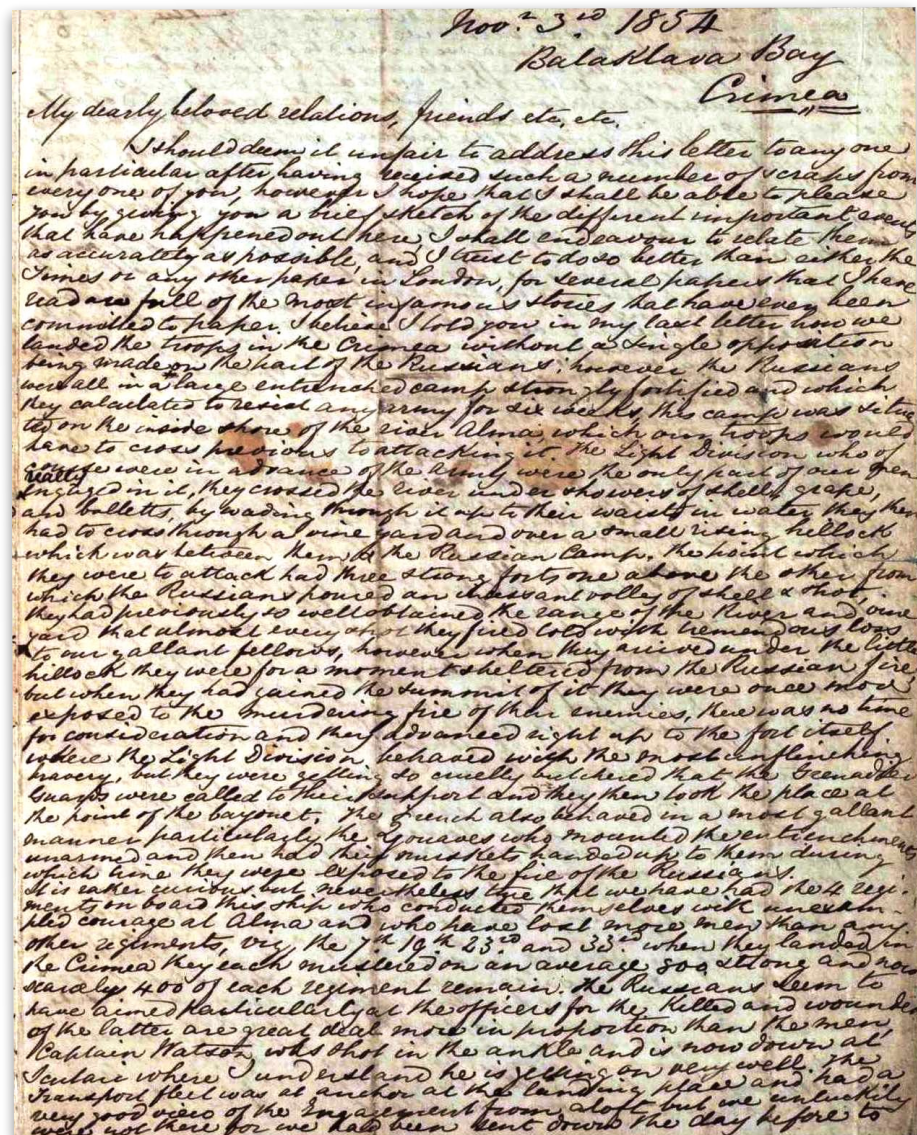 Novr. 3rd 1854
Balaklava Bay
Crimea
My dearly beloved relations, friends etc, etc.
I should deem it unfair to address this letter to any one
in particular after having received such a number of scraps from
every one of you, however I hope that I shall be able to please
you by giving you a brief sketch of the different important events
that have happened out here, I shall endeavour to relate them
as accurately as possible, and I trust to do so better than either the
Times or any other paper in London, for several papers that I have
read are full of the most infamous stories that have ever been
committed to paper. I believe I told you in my last letter how we
landed the troops in the Crimea without a single opposition
being made on the part of the Russians; however the Russians
were all in a large entrenched camp strongly fortified and which
they calculated to resist any army for six weeks, this camp was situa
ted on the inside shore of the river Alma, which our troops would
have to cross previous to attacking it. The Light Division who of
course were in advance of the army were the only part of our men
really
engaged in it, they crossed the river under showers of shells, grape,
and bulletts, by wading through it up to their waists in water they then
had to cross through a vine yard and over a small rising hillock
which was between them & the Russian Camp. the point which
they were to attack had three strong forts one above the other from
which the Russians poured an incessant volley of shell & shot,
they had previously so well obtained the range of the River and vine
yard that almost every shot they fired told with tremendous loss
to our gallant fellows, however when they arrived under the little
hillock they were for a moment sheltered from the Russian fire
but when they had gained the summit of it they were once more
exposed to the murdering fire of their enemies, there was no time
for consideration and they advanced right up to the fort itself.
where the Light Division, behaved with the most unflinching
bravery, but they were getting so cruelly butchered that the Grenadier
Guards were called to their support and they then took the place at
the point of the bayonet. The French also behaved in a most gallant
manner particularly the Zouaves who mounted the entrenchments
unarmed and then had their muskets handed up to them during
which time they were exposed to the fire of the Russians.
It is rather curious but nevertheless true that we have had the 4 regi-
ments on board this ship who conducted themselves with unexam-
pled courage at Alma and who have lost more men than any
other regiments, viz, the 7th 19th 23rd and 33rd when they landed in
the Crimea they each mustered on an average 800 strong and now
scarcely 400 of each regiment remain. The Russians seem to
have aimed particularly at the officers for the killed and wounded
of the latter are great deal more in proportion than the men,
Captain Watson was shot in the ankle and is now down at
Scutari where I understand he is getting on very well. The
Transport fleet was at anchor at the landing place and had a
very good view of the Engagement from aloft but we unluckily
were not there for we had been sent down the day before to